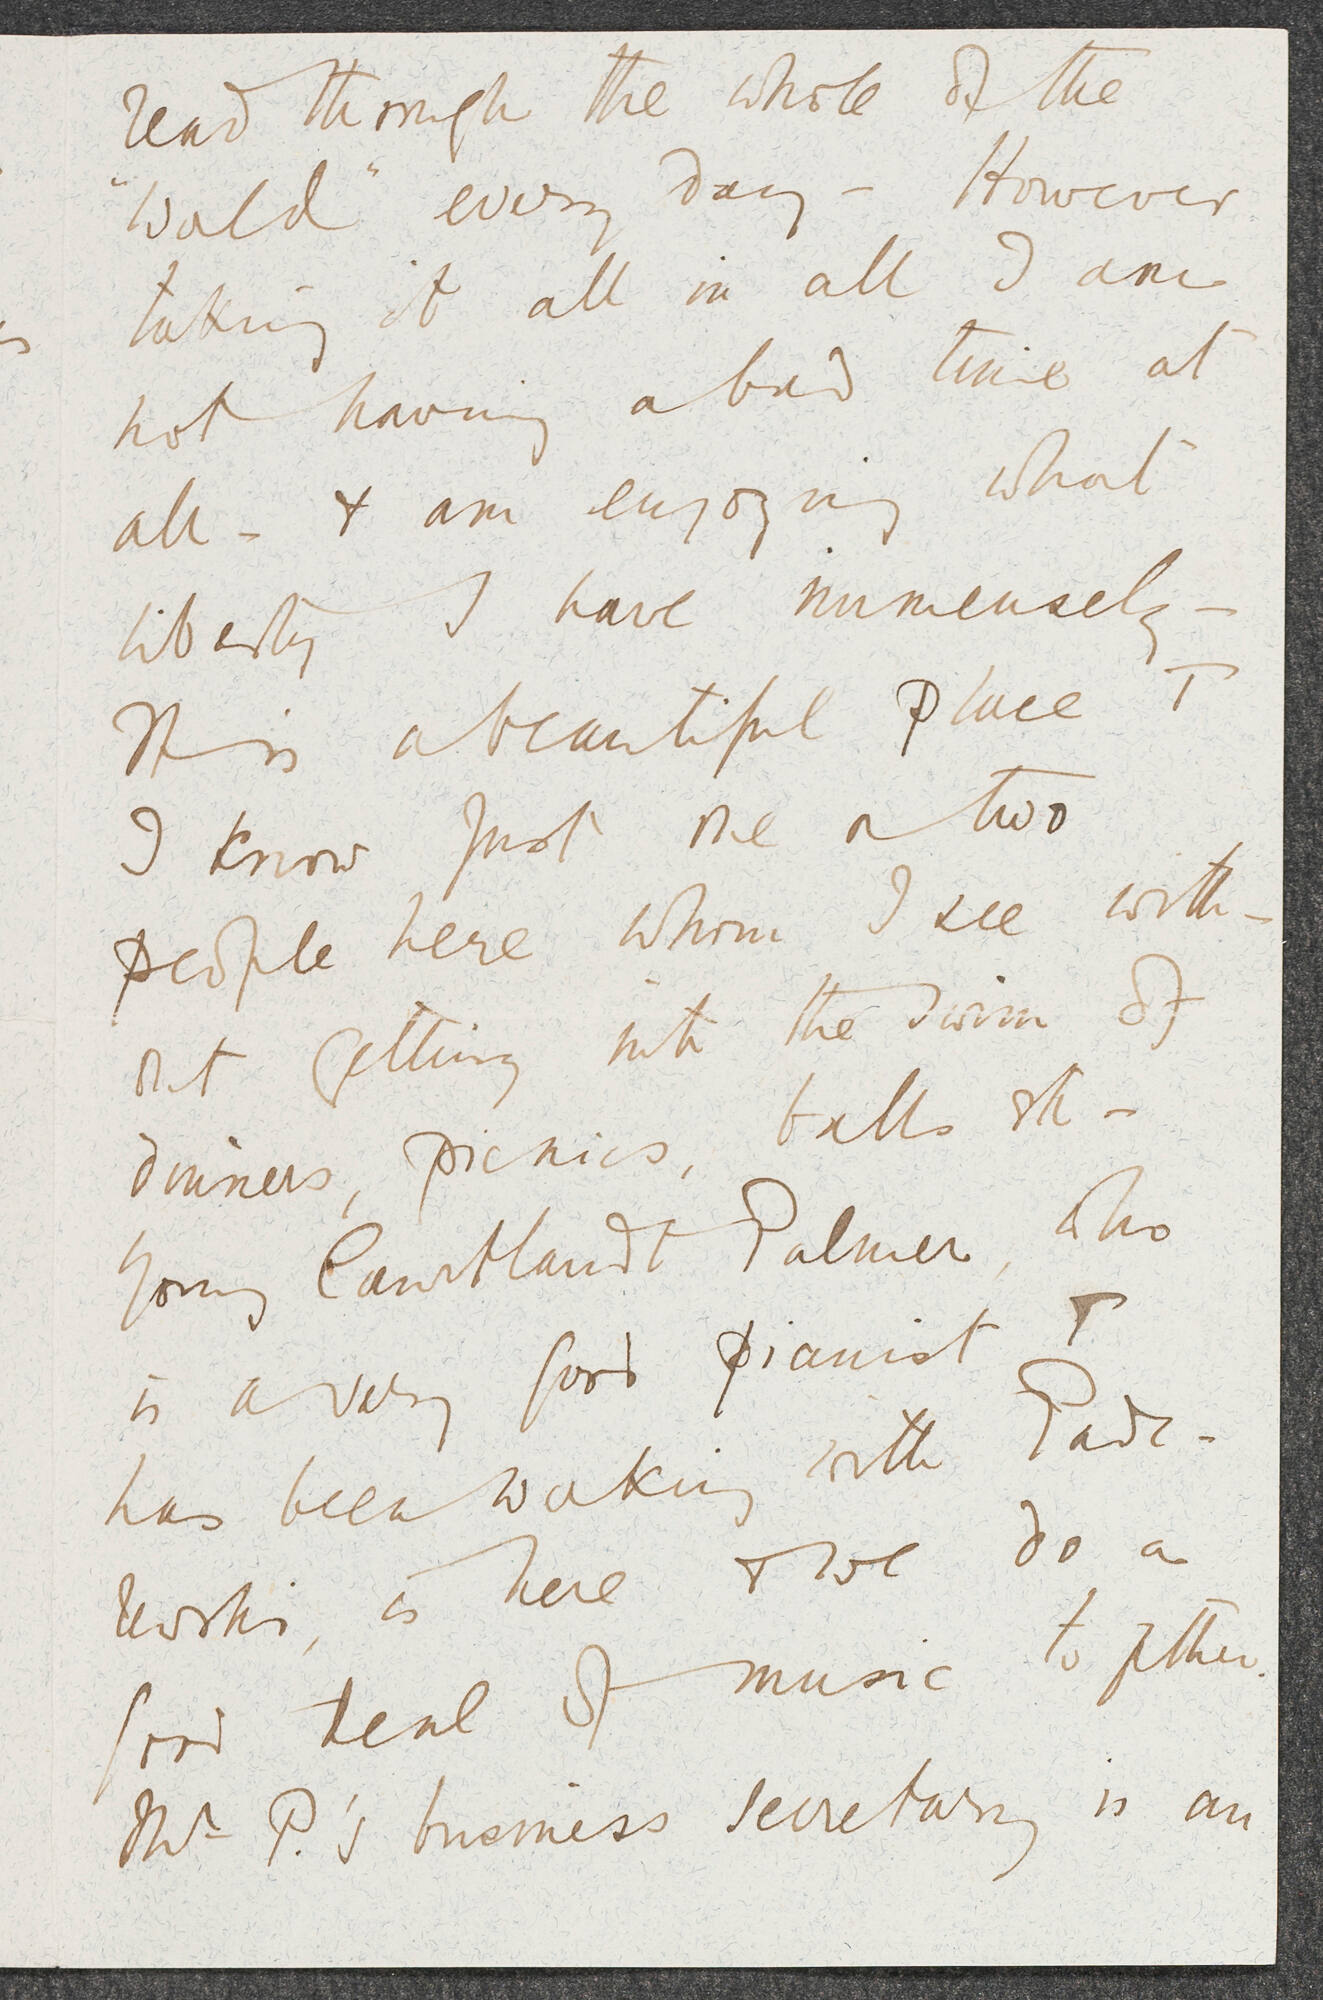 read through the whole of the
"World" every day - However
taking it all in all I am
not having a bad time at
all - & am enjoying what
liberty I have immensely -
It is a beautiful place &
I know just one or two
people here whom I see with-
out getting into the swim of
dinners, picnics, balls etc -
Young Courtlandt Palmer, who
is a very good pianist &
has been working with Pade-
rewski, is here & we do a
good deal of music together.
Mr P.'s business secretary is an